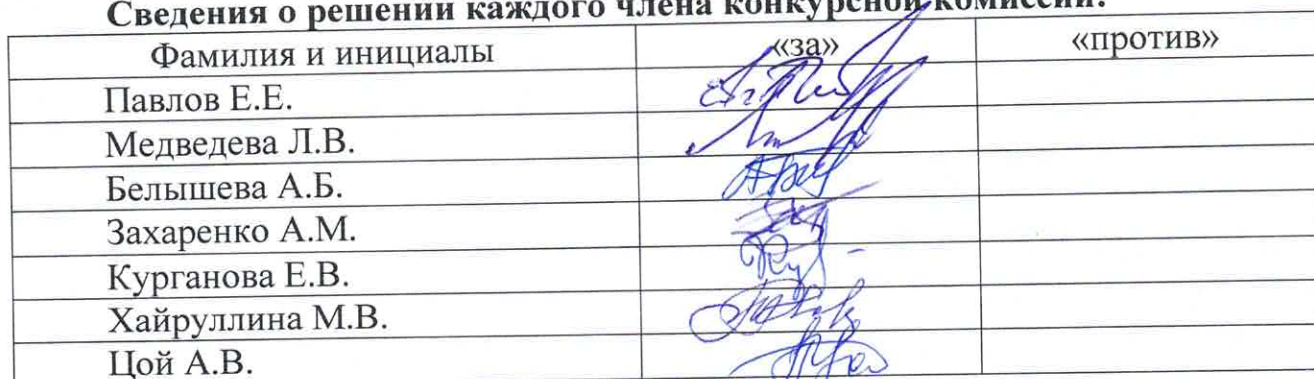 Сведения о решении каждого члена конкурсной комиссии:
Фамилия и инициалы «за» «против»
Павлов Е.Е.
Медведева Л.В.
Белышева А.Б.
Захаренко А.М.
Курганова Е.В.
Хайруллина М.В.
Цой А.В.